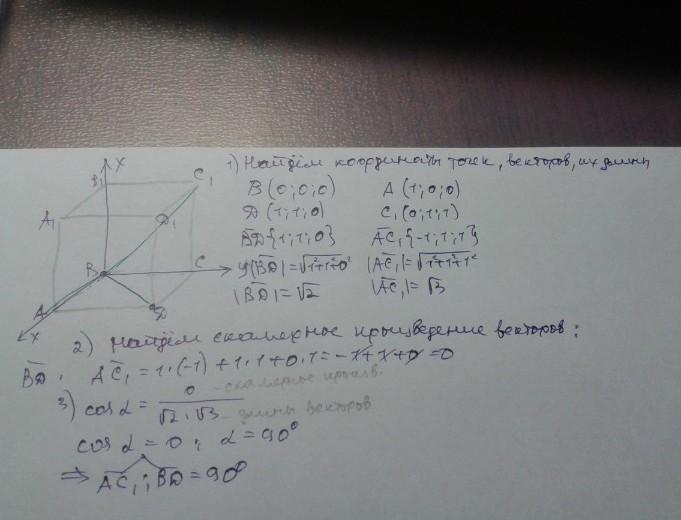 X
B₁
C₁
A₁
D₁
B
C
y
A
D
X
1) Найдём координаты точек, векторов, их длины
B (0;0;0) A (1;0;0)
D (1;1;0) C₁ (0;1;1)
BD {1;1;0} AC₁ {-1;1;1}
|BD| = √1²+1²+0² |AC₁| = √1²+1²+1²
|BD| = √2 |AC₁| = √3
2) Найдём скалярное произведение векторов:
BD · AC₁ = 1·(-1) + 1·1 + 0·1 = -1+1+0 = 0
3) cos α = 0 / √2·√3 - скалярное произв. - длины векторов
cos α = 0; α = 90°
⇒ AC₁; BD = 90°